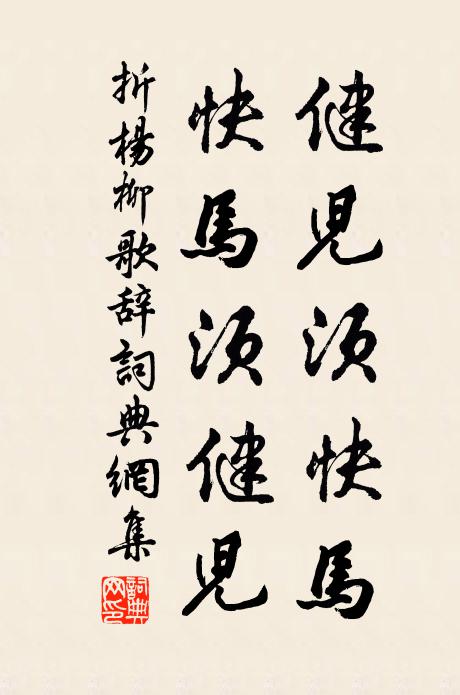 健兒須快馬
快馬須健兒
折楊柳歌辭詞典網集
詞典網印